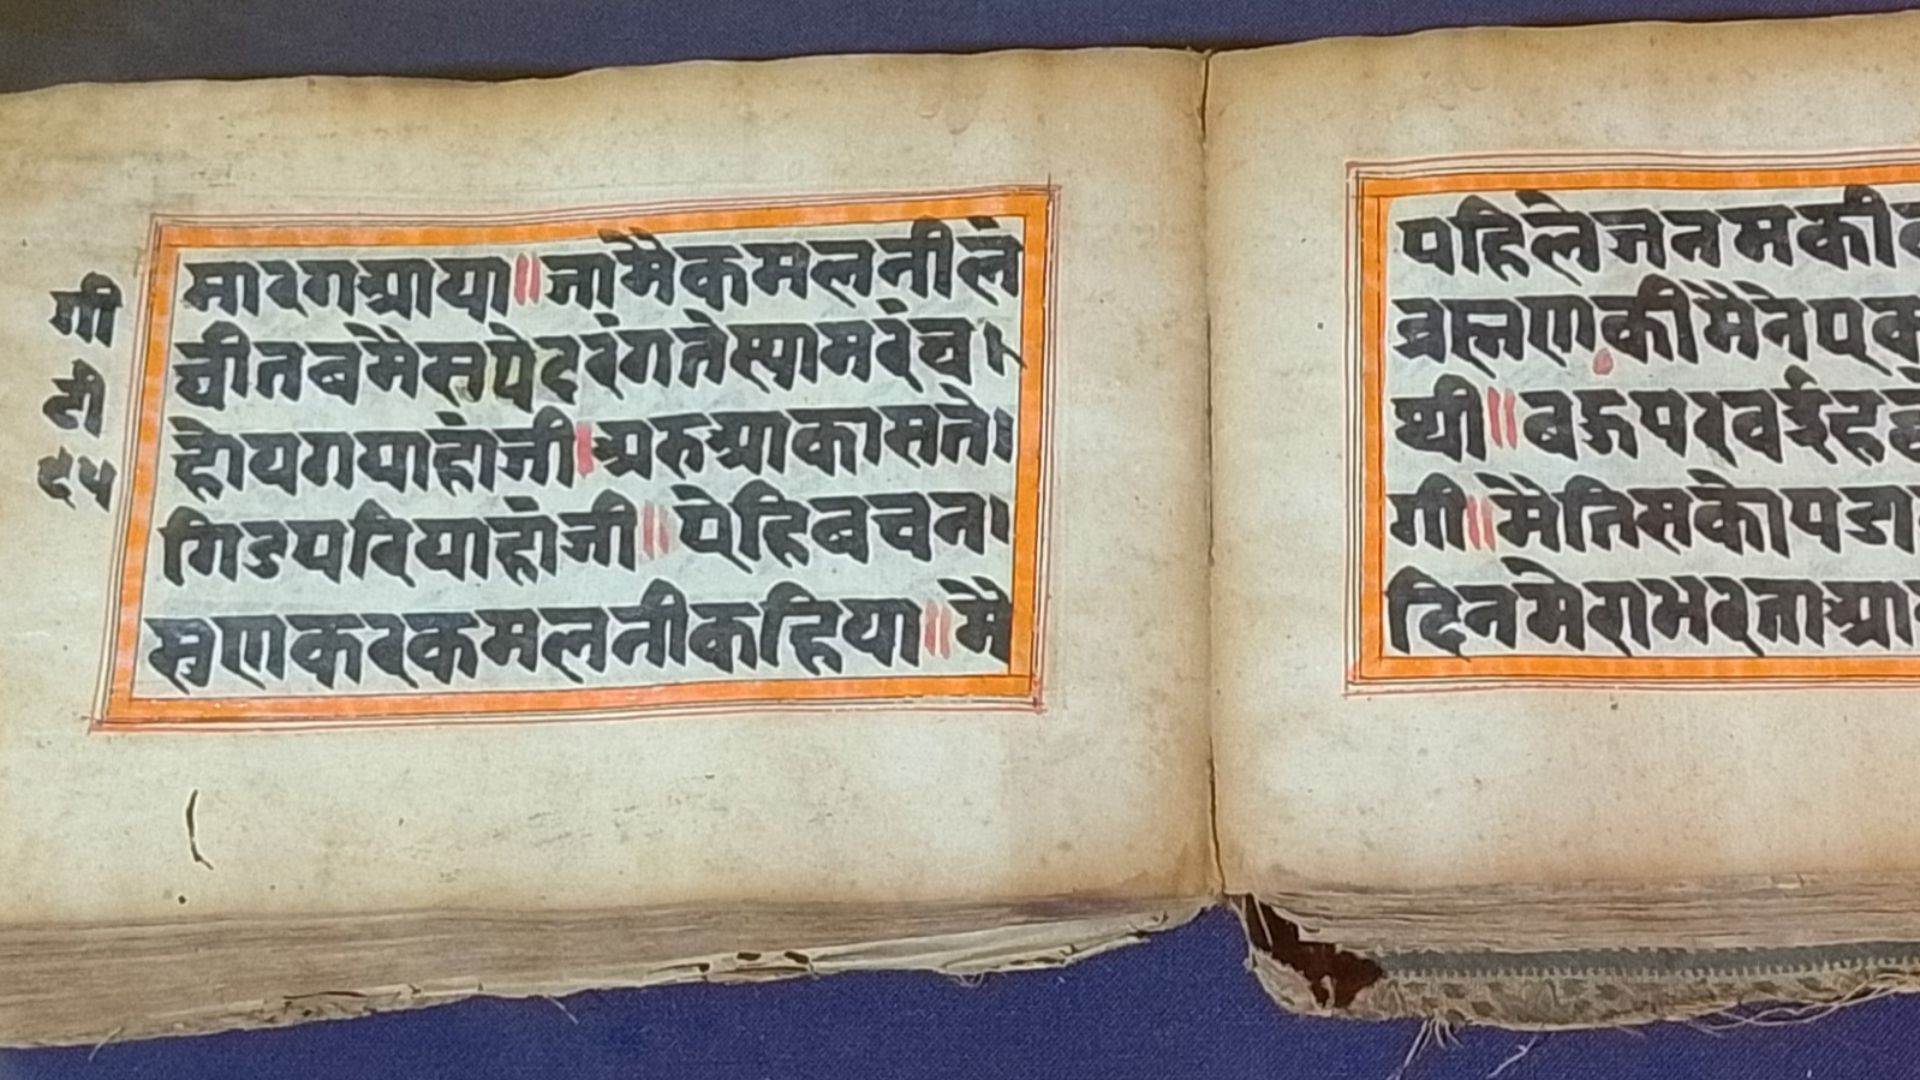 गी
टी
८५
मारगआया॥जामैकमलनीलं
चीतबमैसपेदरंगतेस्यामरंच।
होयगयाहांजी॥अरुआकासते।
गिडपरियाहांजी॥येहिबचन।
सुणकरकमलनीकहिया॥मै
पहिलेजनमकी
ब्रह्मणकीमैनेएक
थी॥बऊपरव
गी॥मैतिसकोपडा
दिनमेराभरताआ